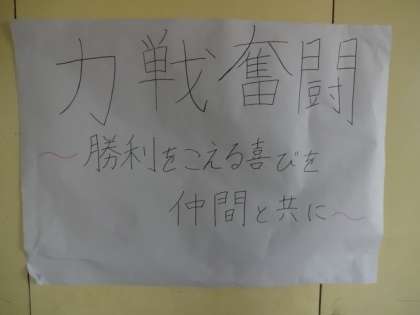 力戦奮闘
～勝利をこえる喜びを
仲間と共に～